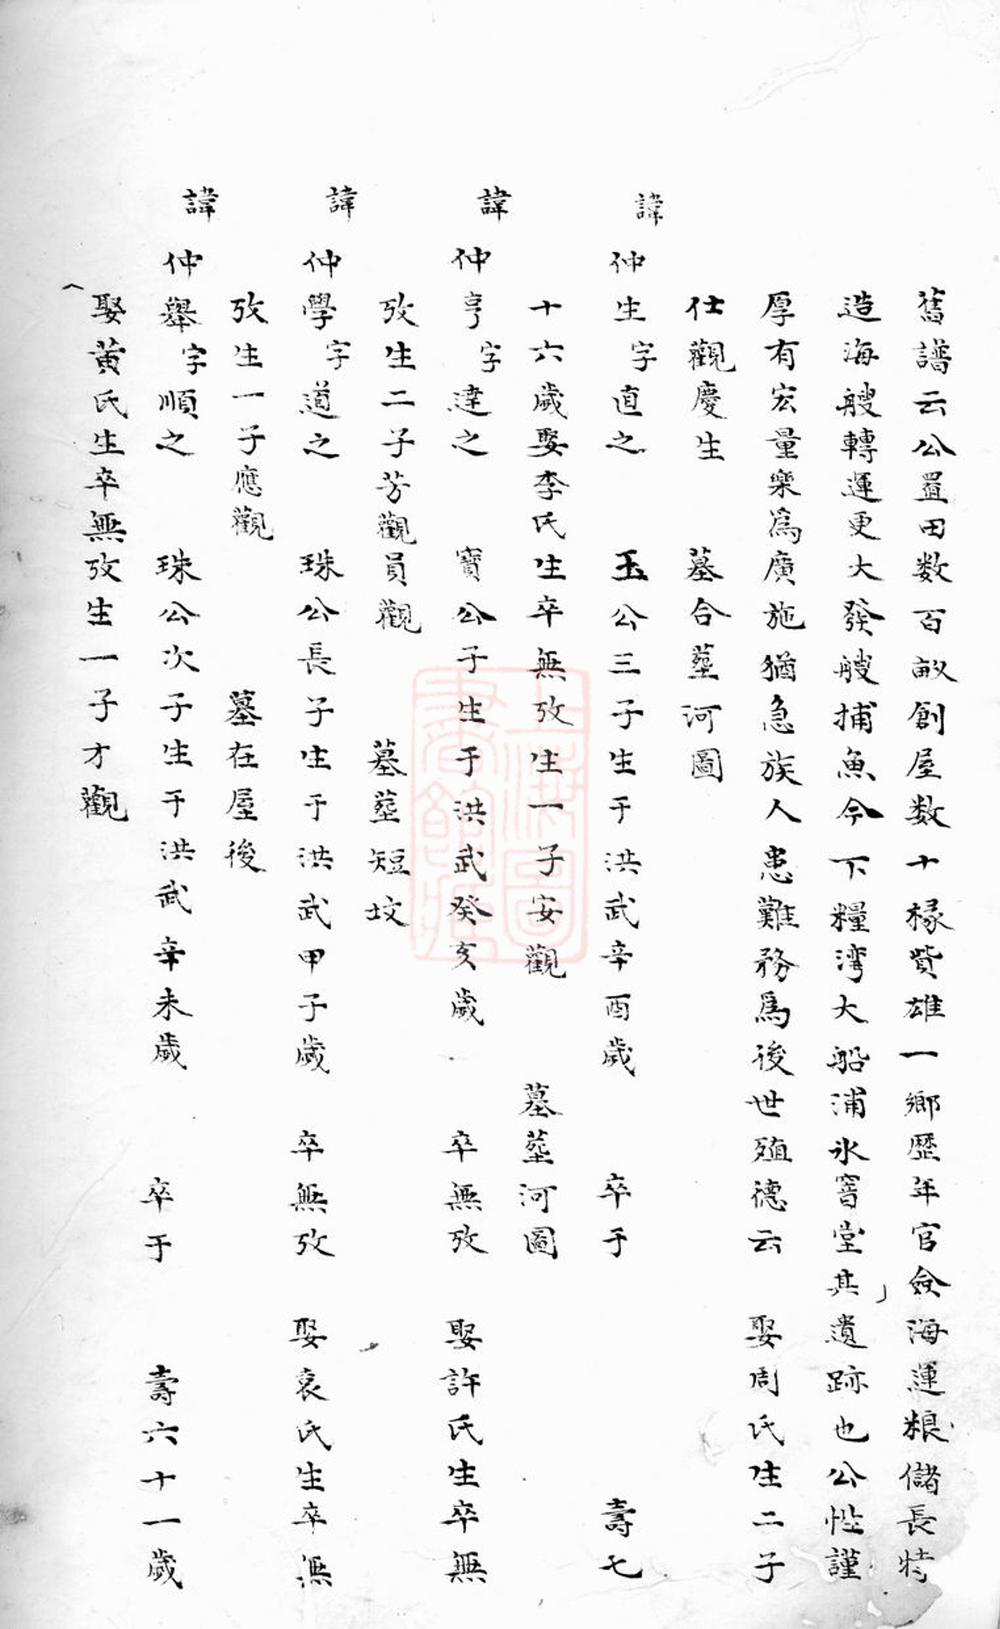 舊譜云公置田数百畝創屋数十椽貲雄一鄉歷年官僉海運粮儲長特
造海艘轉運更大發艘捕魚今下糧湾大船浦氷窖堂其遺跡也公性謹
厚有宏量樂爲廣施猶急族人患難務爲後世殖德云 娶周氏生二子
仕觀慶生 墓合塟河圖
諱仲生字直之 玉公三子生于洪武辛酉歲 卒于 壽七
十六歲娶李氏生卒無攷生一子安觀 墓塟河圖
諱仲亨字達之 寳公子生于洪武癸亥歲 卒無攷 娶許氏生卒無
攷生二子芳觀員觀 墓塟短坟
諱仲學字道之 珠公長子生于洪武甲子歲 卒無攷 娶袁氏生卒無
攷生一子應觀 墓在屋後
諱仲舉字順之 珠公次子生于洪武辛未歲 卒于 壽六十一歲
娶黄氏生卒無攷生一子才觀
上海圖書館藏